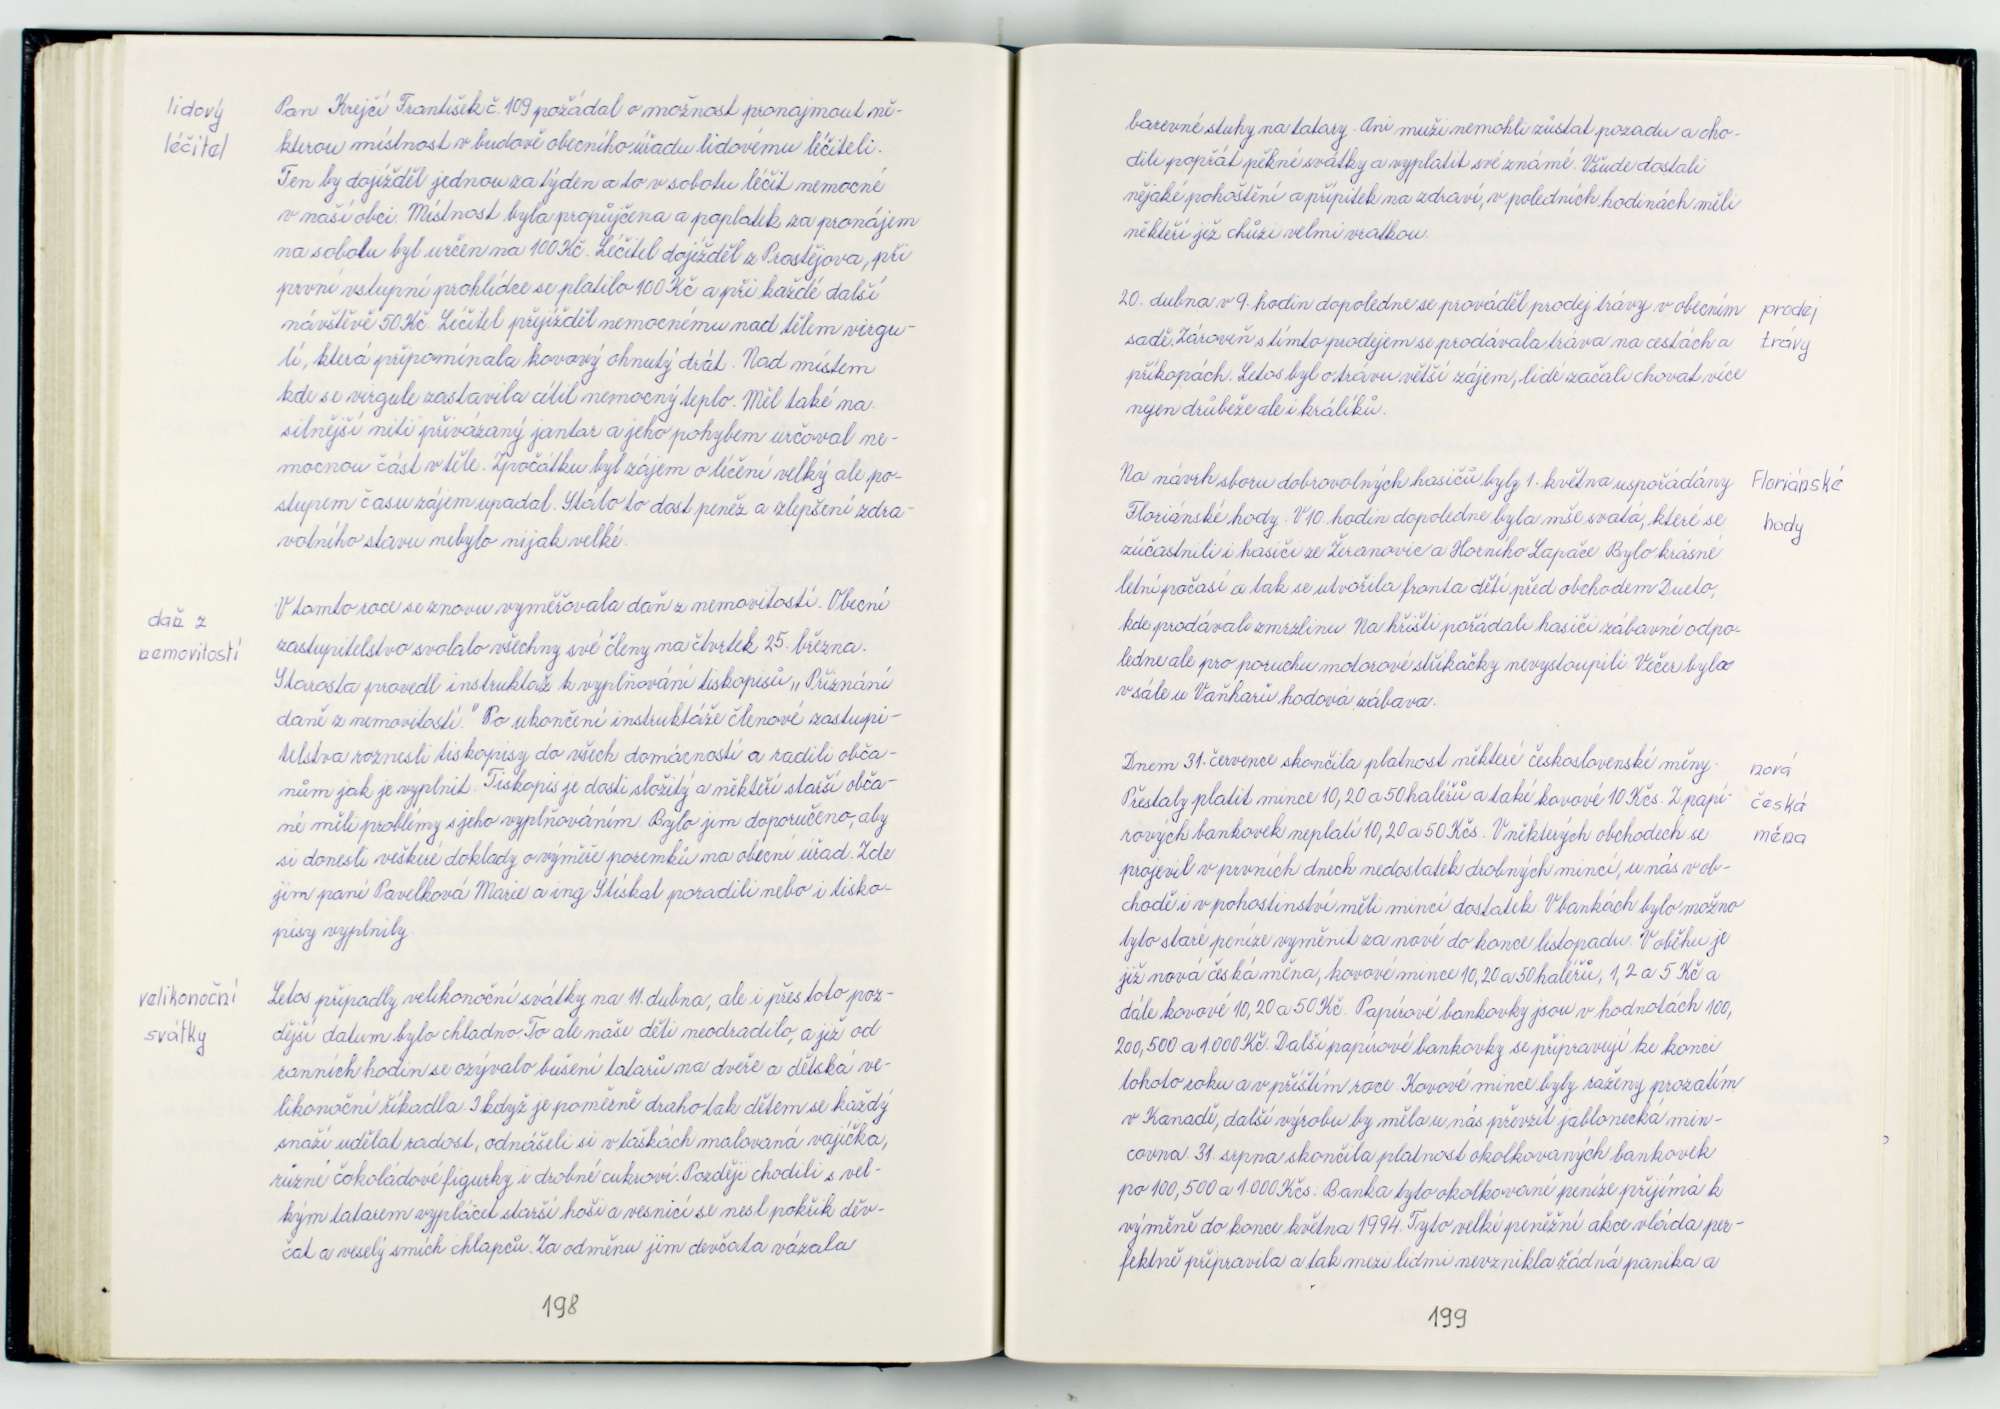 lidový
léčitel
Pan Krejčí František č. 109 požádal o možnost pronajmout ně-
kterou místnost v budově obecního úřadu lidovému léčiteli.
Ten by dojížděl jednou za týden a to v sobotu léčit nemocné
v naší obci. Místnost byla propůjčena a poplatek za pronájem
na sobotu byl určen na 100 Kč. Léčitel dojížděl z Prostějova, při
první vstupní prohlídce se platilo 100 Kč a při každé další
návštěvě 50 Kč. Léčitel přejížděl nemocnému nad tělem virgu-
lí, která připomínala kovový ohnutý drát. Nad místem
kde se virgule zastavila cítil nemocný teplo. Měl také na
silnější niti přivázaný jantar a jeho pohybem určoval ne-
mocnou část v těle. Zpočátku byl zájem o léčení velký ale po-
stupem času zájem upadal. Stálo to dost peněz a zlepšení zdra-
votního stavu nebylo nijak velké.
daň z
nemovitostí
V tomto roce se znovu vyměřovala daň z nemovitostí. Obecní
zastupitelstvo svolalo všechny své členy na čtvrtek 25. března.
Starosta provedl instruktáž k vyplňování tiskopisů „Přiznání
daně z nemovitostí." Po ukončení instruktáže členové zastupi-
telstva roznesli tiskopisy do všech domácností a radili obča-
nům jak je vyplnit. Tiskopis je dosti složitý a někteří starší obča-
né měli problémy s jeho vyplňováním. Bylo jim doporučeno, aby
si donesli veškeré doklady o výměře pozemků na obecní úřad. Zde
jim paní Pavelková Marie a ing Stískal poradili nebo i tisko-
pisy vyplnily.
velikonoční
svátky
Letos připadly velikonoční svátky na 11. dubna, ale i přes toto poz-
dější datum bylo chladno. To ale naše děti neodradilo, a již od
ranních hodin se ozývalo bušení tatarů na dveře a dětská ve-
likonoční říkadla. I když je poměrně draho tak dětem se každý
snaží udělat radost, odnášeli si v taškách malovaná vajíčka,
různé čokoládové figurky i drobné cukroví. Později chodili s vel-
kým tatarem vyplácet starší hoši a vesnicí se nesl pokřik děv-
čat a veselý smích chlapců. Za odměnu jim devčata vázala
198
barevné stuhy na tatary. Ani muži nemohli zůstat pozadu a cho-
dili popřát pěkné svátky a vyplatit své známé. Všude dostali
nějaké pohoštění a přípitek na zdraví, v poledních hodinách měli
někteří již chůzi velmi vratkou.
20. dubna v 9. hodin dopoledne se prováděl prodej trávy v obecním
sadě. Zároveň s tímto prodejem se prodávala tráva na cestách a
příkopách. Letos byl o trávu větší zájem, lidé začali chovat více
nejen drůbeže ale i králíků.
prodej
trávy
Na návrh sboru dobrovolných hasičů byly 1. května uspořádány
Floriánské hody. V 10. hodin dopoledne byla mše svatá, které se
zúčastnili i hasiči ze Žeranovic a Horního Lapače. Bylo krásné
letní počasí a tak se utvořila fronta dětí před obchodem Dueto,
kde prodávali zmrzlinu. Na hřišti pořádali hasiči zábavné odpo-
ledne ale pro poruchu motorové stříkačky nevystoupili. Večer byla
v sále u Vaňharů hodová zábava.
Floriánské
hody
Dnem 31. července skončila platnost některé československé měny.
Přestaly platit mince 10, 20 a 50 haléřů a také kovové 10 Kčs. Z papí-
rových bankovek neplatí 10, 20 a 50 Kčs. V některých obchodech se
projevil v prvních dnech nedostatek drobných mincí, u nás v ob-
chodě i v pohostinství měli mincí dostatek. V bankách bylo možno
tyto staré peníze vyměnit za nové do konce listopadu. V oběhu je
již nová česká měna, kovové mince 10, 20 a 50 haléřů, 1, 2 a 5 Kč a
dále kovové 10, 20 a 50 Kč. Papírové bankovky jsou v hodnotách 100,
200, 500 a 1 000 Kč. Další papírové bankovky se připravují ke konci
tohoto roku a v příštím roce. Kovové mince byly raženy prozatím
v Kanadě, další výrobu by měla u nás převzít jablonecká min-
covna. 31. srpna skončila platnost okolkovaných bankovek
po 100, 500 a 1.000 Kčs. Banka tyto okolkované peníze přijímá k
výměně do konce května 1994. Tyto velké peněžní akce vláda per-
fektně připravila a tak mezi lidmi nevznikla žádná panika a
nová
česká
měna
199